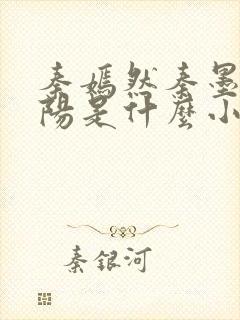 秦嫣然秦墨
陽是什麼小
秦銀河